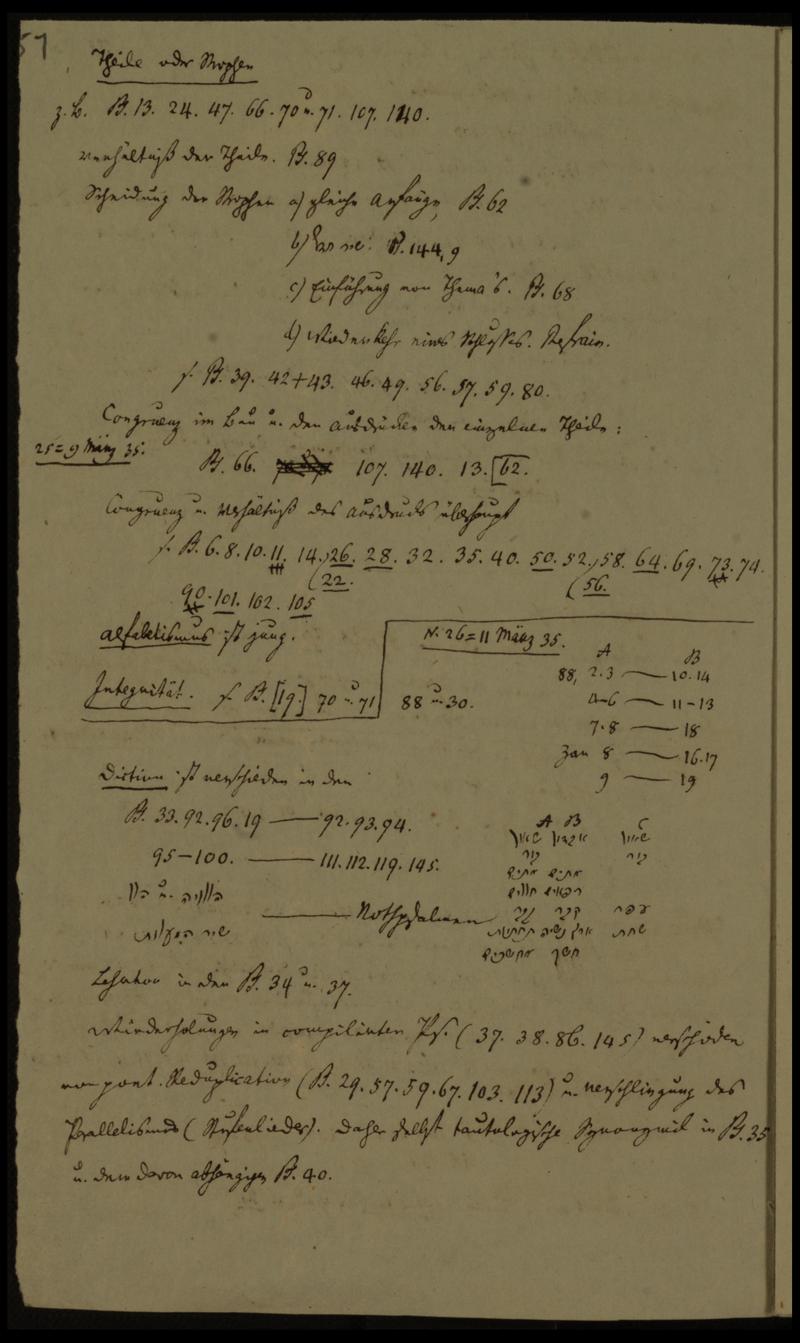 57
Theile oder Strophen
z. B. Ps. 13. 24. 47. 66. 70 u. 71. 107. 140.
Verhältniß der Theile. Ps. 89
Scheidung der Strophen a) gleiche Anfänge Ps. 62
b) Ps. 144, 9
c) Einführung von Thema's. Ps. 68
d) Wiederkehr eines Schlusses. Refrain.
s. Ps. 39. 42+43. 46. 49. 56. 57. 59. 80.
Congruenz im Bau u. den Ausdrücken der einzelnen Theile:
25 = 9 März 35.
Ps. 66. 107. 140. 13. [62.
Congruenz u. Verhältniß des Ausdrucks überhaupt
s. Ps. 6. 8. 10. 11. 14. 26. 28. 32. 35. 40. 50. 52. 58. 64. 69. 73. 74.
(22. (56.
90. 101. 102. 105
Alfabetismus ist jung.
N. 26 = 11 März 35.
A B
88, 2.3 — 10.14
Integrität. s. Ps. [19.] 70 u. 71 88 u. 30.
4-6 — 11-13
7.8 — 18
8 — 16.17
9 — 19
Diction ist verschieden in den
Ps. 33. 92. 96. 19 — 92. 93. 94.
A B C
95-100. — 111. 112. 119. 145.
— Nothpsalmen
שיר המעלות
חשך מחשכים
in den Ps. 34 u. 37.
Wiederholungen in compilirten Ps. (37. 38. 86. 145) verschieden
von poet. Reduplication (Ps. 29. 57. 59. 67. 103. 113) u. Verschlingung des
Parallelismus (Stufenlieder). Daher selbst tautologische Synonymik in Ps. 35
u. dem davon abhängigen Ps. 40.